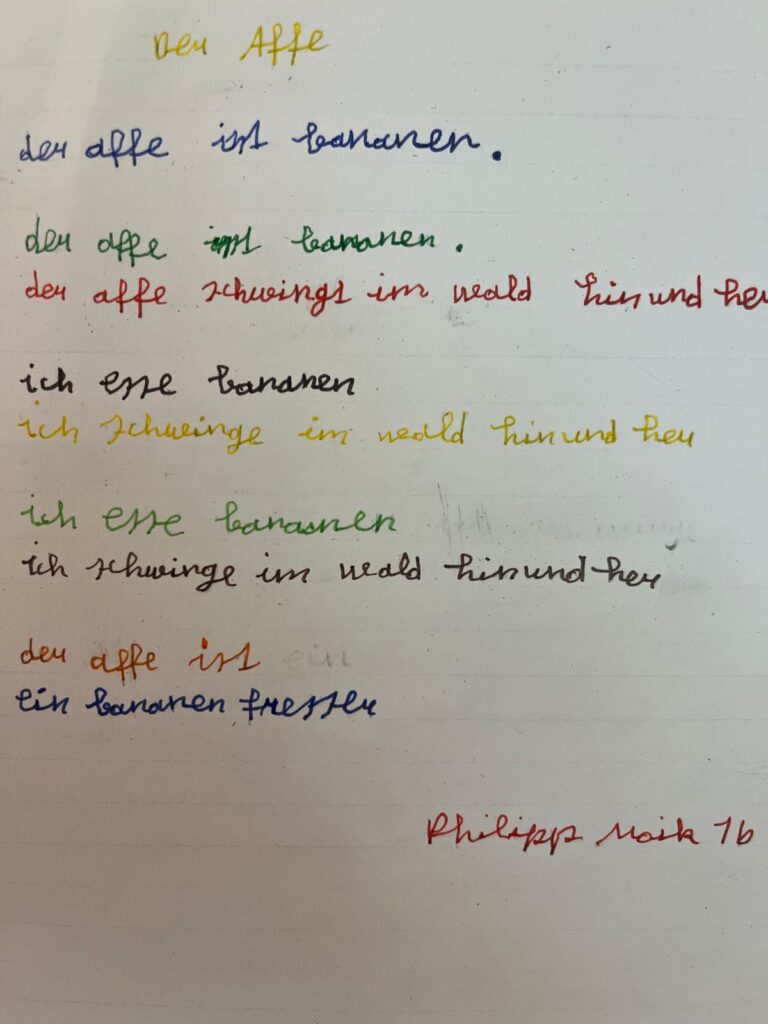 Der Affe
der affe isst bananen.
der affe isst bananen.
der affe schwingt im wald hin und her
ich esse bananen
ich schwinge im wald hin und her
ich esse bananen
ich schwinge im wald hin und her
der affe ist ein
ein bananen fresser
Philipp Moik 1b